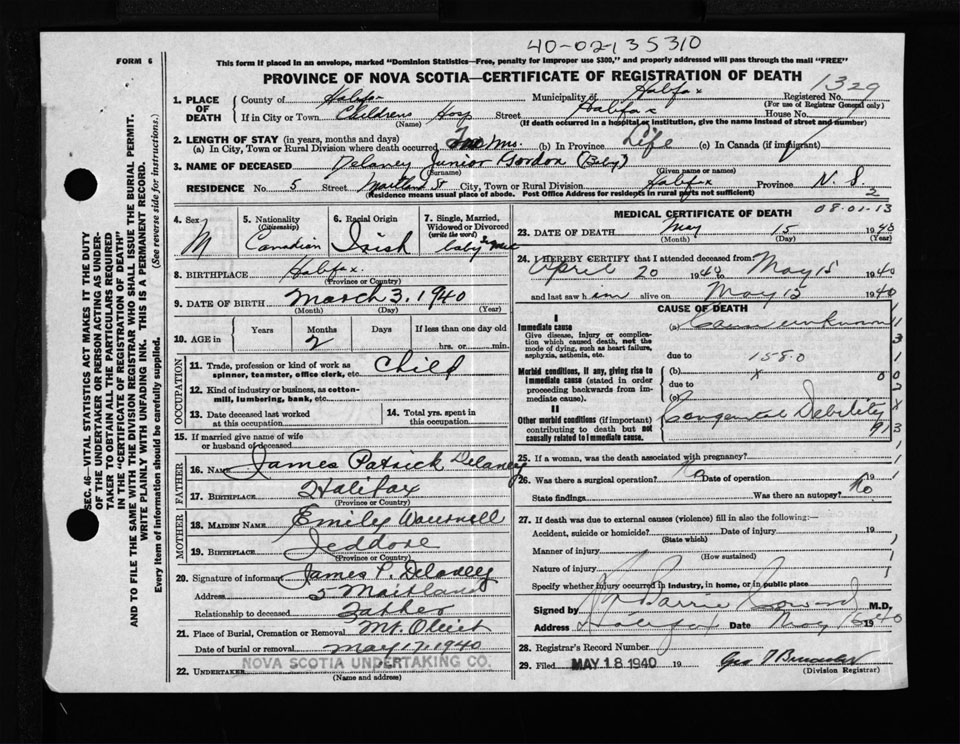 40-02-135310
FORM 6
This form if placed in an envelope, marked "Dominion Statistics—Free, penalty for improper use $300," and properly addressed will pass through the mail "FREE"
PROVINCE OF NOVA SCOTIA—CERTIFICATE OF REGISTRATION OF DEATH
1329
1. PLACE OF DEATH
County of Halifax Municipality of Halifax Registered No.
(For use of Registrar General only)
If in City or Town Childrens Hosp Street Halifax House No.
(Name) (If death occurred in a hospital or institution, give the name instead of street and number)
2. LENGTH OF STAY (in years, months and days)
(a) In City, Town or Rural Division where death occurred mos. (b) In Province Life (c) In Canada (if immigrant)
3. NAME OF DECEASED Delaney Junior Gordon (Baby)
(Surname) (Given name or names)
RESIDENCE No. 5 Street Maitland St City, Town or Rural Division Halifax Province N. S.
(Residence means usual place of abode. Post Office Address for residents in rural parts not sufficient)
2
SEC. 46—VITAL STATISTICS ACT MAKES IT THE DUTY
OF THE UNDERTAKER OR PERSON ACTING AS UNDER-
TAKER TO OBTAIN ALL THE PARTICULARS REQUIRED
IN THE "CERTIFICATE OF REGISTRATION OF DEATH"
AND TO FILE THE SAME WITH THE DIVISION REGISTRAR WHO SHALL ISSUE THE BURIAL PERMIT.
WRITE PLAINLY WITH UNFADING INK. THIS IS A PERMANENT RECORD.
Every item of information should be carefully supplied. (See reverse side for instructions.)
4. Sex
M
5. Nationality
(Citizenship)
Canadian
6. Racial Origin
Irish
7. Single, Married,
Widowed or Divorced
(write the word)
baby
8. BIRTHPLACE Halifax
(Province or Country)
9. DATE OF BIRTH March 3, 1940
(Month) (Day) (Year)
10. AGE in
Years Months Days If less than one day old
2 hrs. or min.
OCCUPATION
11. Trade, profession or kind of work as
spinner, teamster, office clerk, etc. Child
12. Kind of industry or business, as cotton-
mill, lumbering, bank, etc.
13. Date deceased last worked
at this occupation
14. Total yrs. spent in
this occupation
15. If married give name of wife
or husband of deceased
FATHER
16. NAME James Patrick Delaney
17. BIRTHPLACE Halifax
(Province or Country)
MOTHER
18. MAIDEN NAME Emily
19. BIRTHPLACE Jeddore
(Province or Country)
20. Signature of informant James P. Delaney
Address 5 Maitland
Relationship to deceased Father
21. Place of Burial, Cremation or Removal Mt. Olivet
Date of burial or removal May 17, 1940
22. UNDERTAKER NOVA SCOTIA UNDERTAKING CO.
(Name and address)
MEDICAL CERTIFICATE OF DEATH
08-01-13
23. DATE OF DEATH May 15 1940
(Month) (Day) (Year)
24. I HEREBY CERTIFY that I attended deceased from
April 20 1940 to May 15 1940
and last saw him alive on May 15 1940
CAUSE OF DEATH
I
Immediate cause
Give disease, injury or complica-
tion which caused death, not the
mode of dying, such as heart failure,
asphyxia, asthenia, etc.
(a) Cause unknown
due to 158.0
Morbid conditions, if any, giving rise to
immediate cause (stated in order
proceeding backwards from im-
mediate cause).
(b) x
due to
(c)
II
Other morbid conditions (if important)
contributing to death but not
causally related to immediate cause.
Congenital Debility
25. If a woman, was the death associated with pregnancy?
26. Was there a surgical operation? No Date of operation 19
State findings Was there an autopsy? No
27. If death was due to external causes (violence) fill in also the following:—
Accident, suicide or homicide? Date of injury 19
(State which)
Manner of injury
(How sustained)
Nature of injury
Specify whether injury occurred in industry, in home, or in public place
Signed by Barrie Coward M.D.
Address Halifax Date May 16 1940
28. Registrar's Record Number
29. Filed MAY 18 1940 19
(Division Registrar)